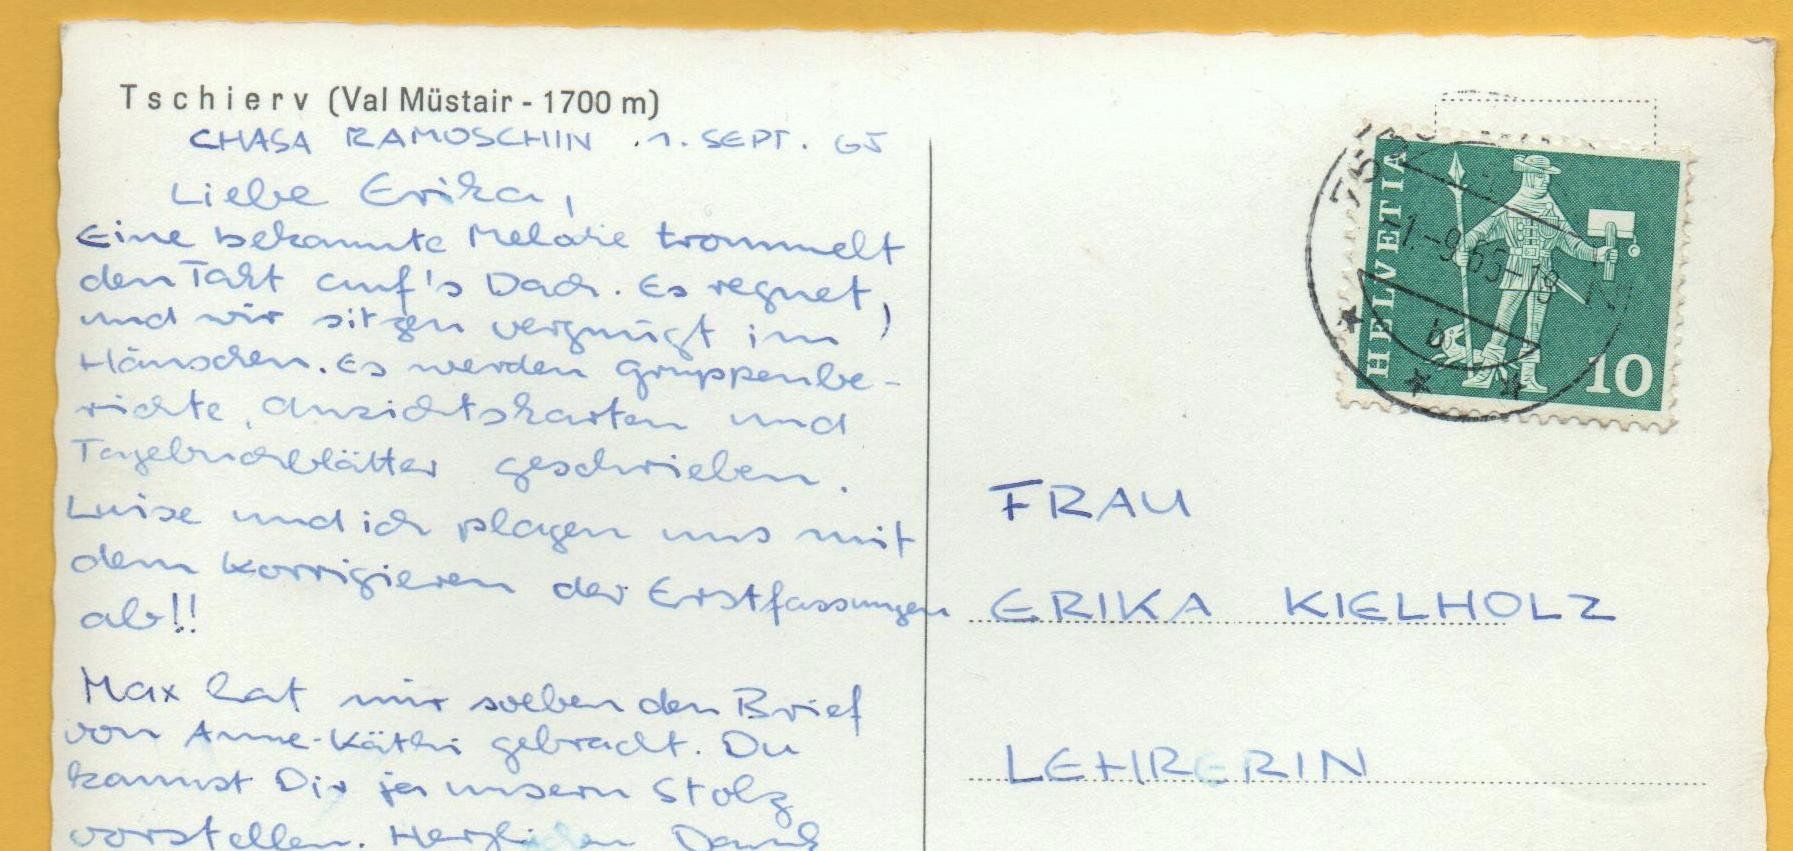 Tschierv (Val Müstair - 1700 m)
CHASA RAMOSCHIN . 1. SEPT. 65
Liebe Erika,
Eine bekannte Melodie trommelt
den Takt auf's Dach. Es regnet,
und wir sitzen vergnügt im
Häuschen. Es werden Gruppenbe-
richte, Ansichtskarten und
Tagebuchblätter geschrieben.
Luise und ich plagen uns mit
dem Korrigieren der Erstfassungen
ab!!
Max hat mir soeben den Brief
von Anne-Käthi gebracht. Du
kannst Dir ja unsern Stolz
vorstellen. Herzlichen Dank
HELVETIA
10
-1.-9.65-19
b
FRAU
ERIKA KIELHOLZ
LEHRERIN